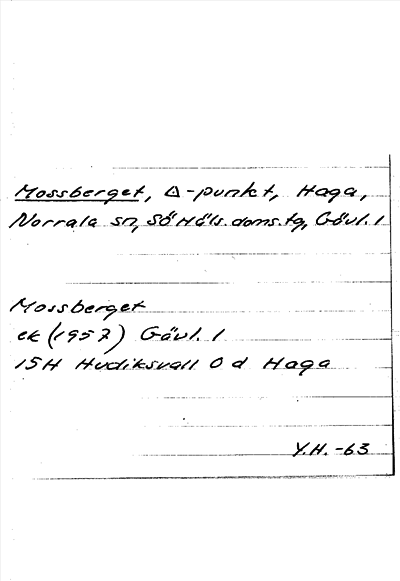 Mossberget, Δ-punkt, Haga,
Norrala sn, SöHäls.doms.tg, Gävl. l
Mossberget
ek (1957) Gävl. l
15H Hudiksvall 0 d Haga
Y.H. -63